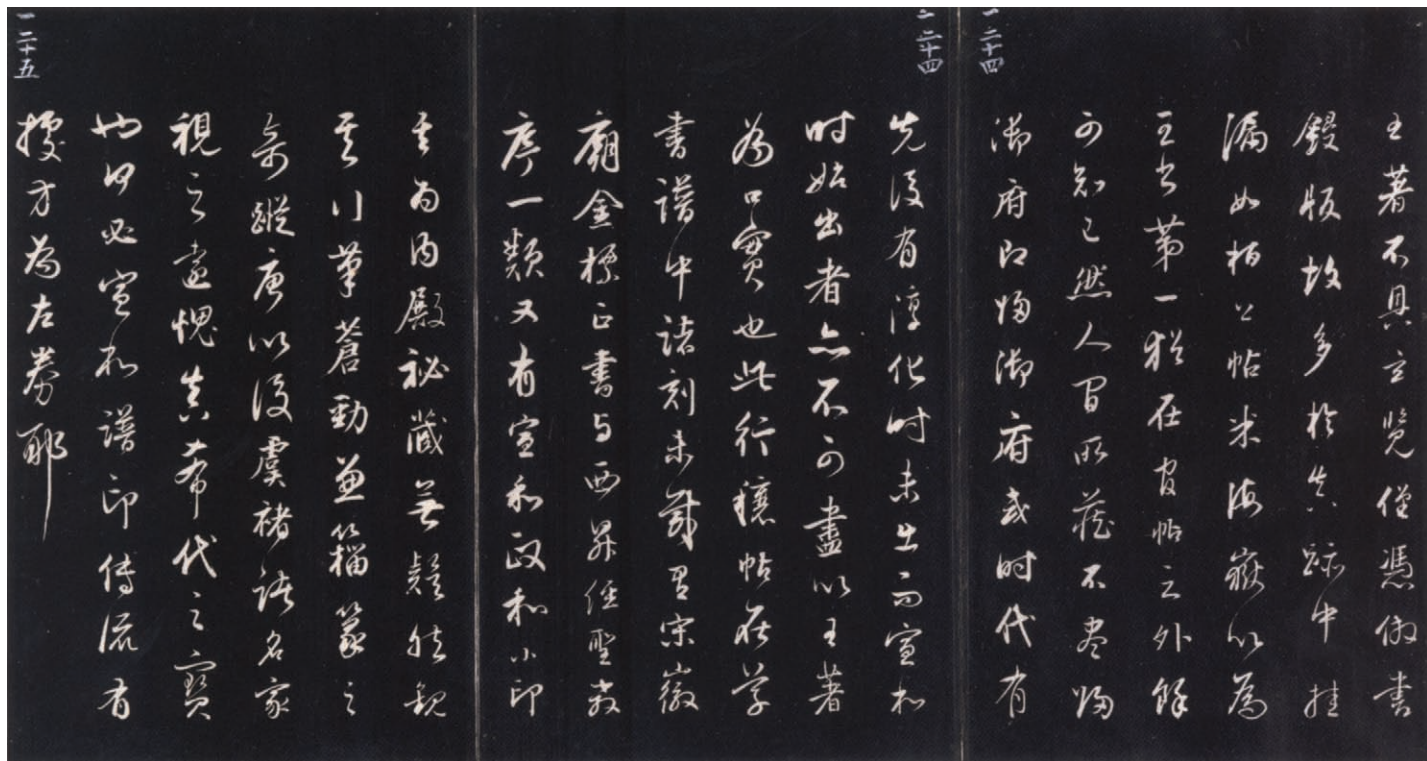 一 二十四
王著不具玄覽僅憑倣書
鋟版故多於真跡中挂
漏如桓公帖米海嶽以為
王書第一猶在官帖之外餘
可知已然人間所藏不盡歸
御府即歸御府或時代有
一 二十四
先後有淳化時未出而宣和
時始出者亦不可盡以王著
為口實也此行穰帖在学
書譜中諸刻未載有宋徽
廟金標正書與西昇經聖教
序一類又有宣和政和小印
一 二十五
其為內殿祕藏無疑然觀
其行筆蒼勁兼籀篆之
奇蹤唐以後虞褚諸名家
視之遠愧真希代之寶
也何必宣和譜印傳流有
據方為左券耶